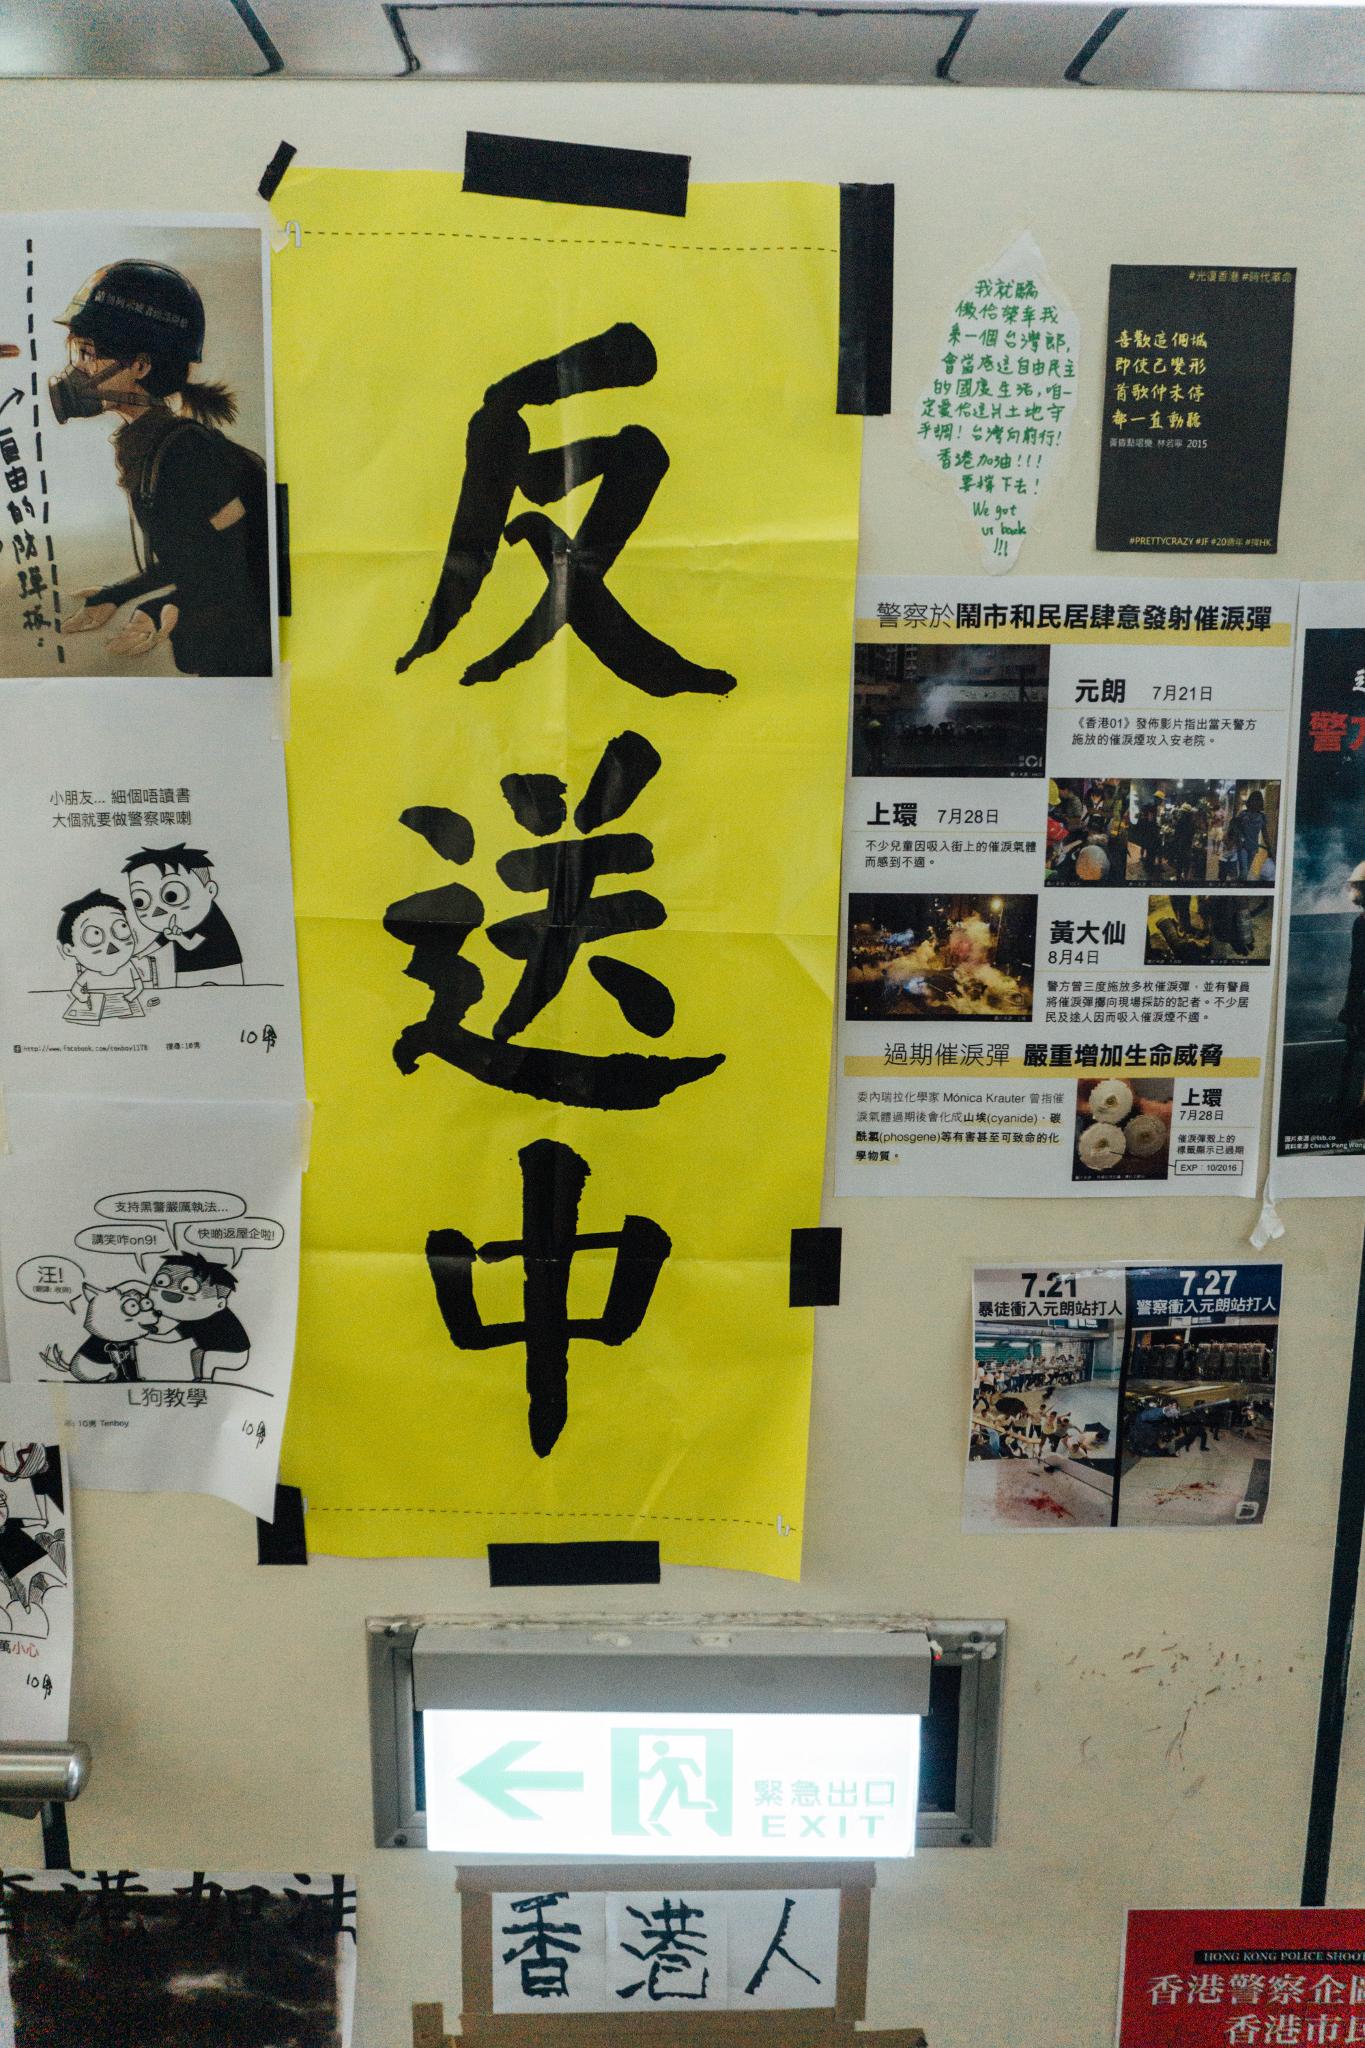 反
送
中
自由的防彈板：
小朋友... 細個唔讀書
大個就要做警察㗎喇
10男
http://www.facebook.com/tenboy1178 搜尋:10男
支持黑警嚴厲執法...
講笑咋on9!
快啲返屋企啦!
汪!
L狗教學
10男 Tenboy
10男
小心
10男
我就驕
傲佮榮幸我
來一個台灣郎,
會當惦這自由民主
的國度生活,咱一
定愛佮這片土地守
乎調! 台灣向前行!
香港加油!!!
要撐下去!
We got
ur back
!!!
#光復香港 #時代革命
喜歡這個城
即使已變形
首歌仲未停
都一直動聽
黃昏點唱樂 林若寧 2015
#PRETTYCRAZY #JF #20週年 #撐HK
警察於鬧市和民居肆意發射催淚彈
元朗 7月21日
《香港01》發佈影片指出當天警方
施放的催淚煙攻入安老院。
上環 7月28日
不少兒童因吸入街上的催淚氣體
而感到不適。
黃大仙
8月4日
警方曾三度施放多枚催淚彈，並有警員
將催淚彈擲向現場採訪的記者。不少居
民及途人因而吸入催淚煙不適。
過期催淚彈 嚴重增加生命威脅
委內瑞拉化學家 Mónica Krauter 曾指催
淚氣體過期後會化成山埃(cyanide)、碳
酰氯(phosgene)等有害甚至可致命的化
學物質。
上環
7月28日
催淚彈殼上的
標籤顯示已過期
EXP：10/2016
警方
圖片來源 @lsb.co
資料來源 Cheuk Pang Wong
7.21
暴徒衝入元朗站打人
7.27
警察衝入元朗站打人
緊急出口
EXIT
香港人
香港加油
HONG KONG POLICE SHOOT
香港警察企圖
香港市民